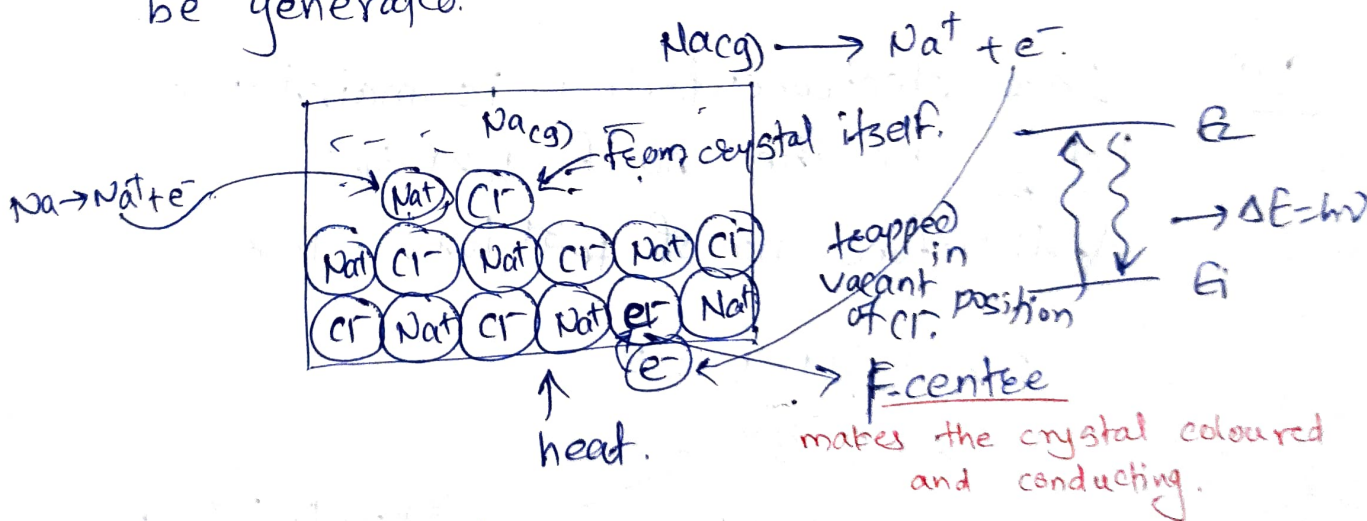 be generated.
Na(g) → Na⁺ + e⁻.
Na(g)
From crystal itself.
E₂
Na→Na⁺+e⁻
Na⁺ Cl⁻
→ ΔE=hν
Na⁺ Cl⁻ Na⁺ Cl⁻ Na⁺ Cl⁻
trapped
in
vacant
position
of Cl⁻.
E₁
Cl⁻ Na⁺ Cl⁻ Na⁺ Na⁺
e⁻
F-centre
heat.
makes the crystal coloured
and conducting.